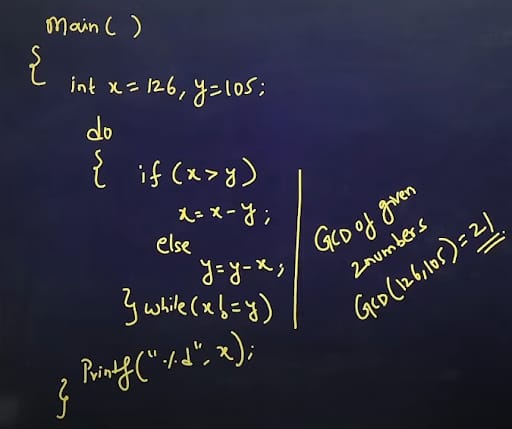 main( )
{
int x = 126, y=105;
do
{ if (x>y)
x= x-y;
else
y=y-x;
} while(x!=y)
printf("%d", x);
}
GCD of given
2 numbers
GCD(126,105)=21